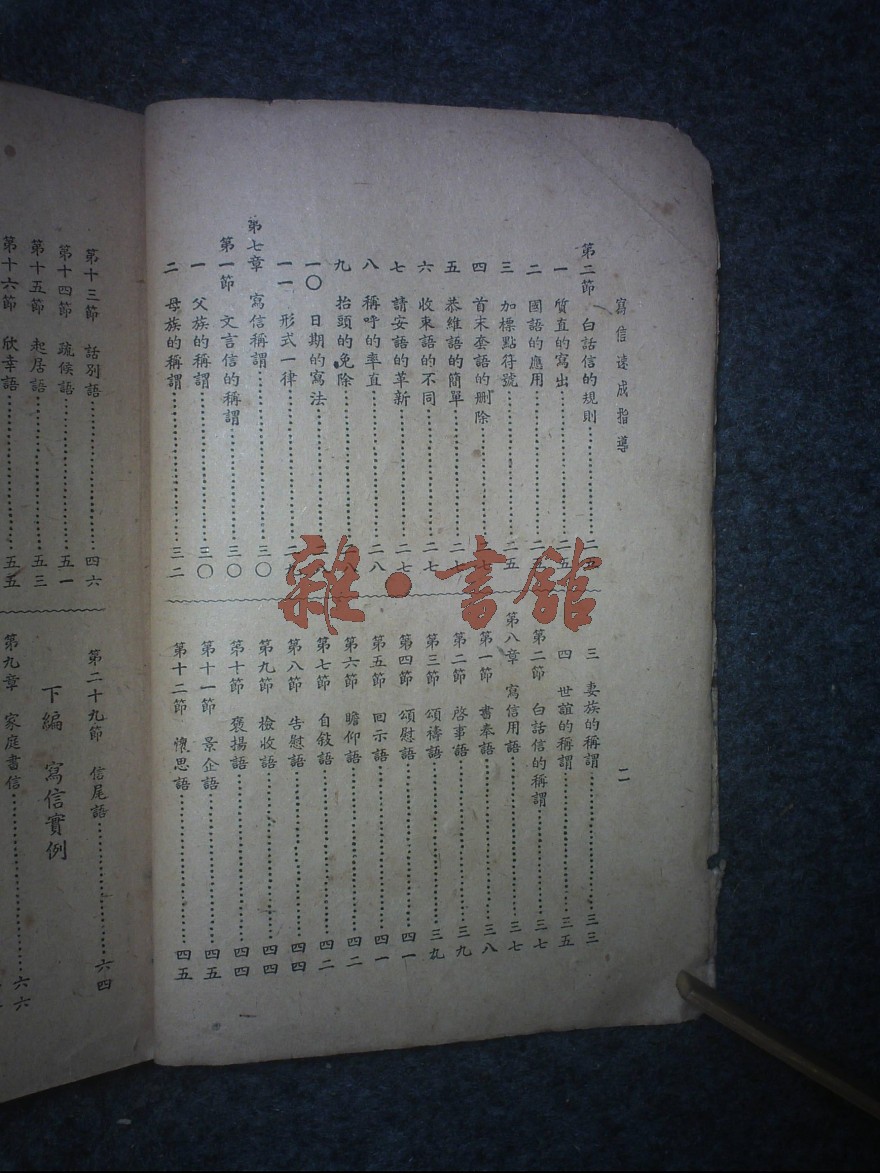 寫信速成指導
二
第二節 白話信的規則……二五
一 質直的寫出……二五
二 國語的應用……二五
三 加標點符號……二五
四 首末套語的刪除……二七
五 恭維語的簡單……二七
六 收束語的不同……二七
七 請安語的革新……二七
八 稱呼的率直……二八
九 抬頭的免除……二八
一〇 日期的寫法……二八
一一 形式一律……二九
第七章 寫信稱謂……三〇
第一節 文言信的稱謂……三〇
一 父族的稱謂……三〇
二 母族的稱謂……三二
三 妻族的稱謂……三三
四 世誼的稱謂……三五
第二節 白話信的稱謂……三七
第八章 寫信用語……三七
第一節 書奉語……三八
第二節 啓事語……三九
第三節 頌禱語……三九
第四節 頌慰語……四一
第五節 回示語……四一
第六節 瞻仰語……四二
第七節 自敍語……四二
第八節 告慰語……四四
第九節 檢收語……四四
第十節 褒揚語……四四
第十一節 景企語……四五
第十二節 懷思語……四五
第十三節 話別語……四六
第十四節 疏候語……五一
第十五節 起居語……五三
第十六節 欣幸語……五五
第二十九節 信尾語……六四
下編 寫信實例
第九章 家庭書信……六六
雜·書舘